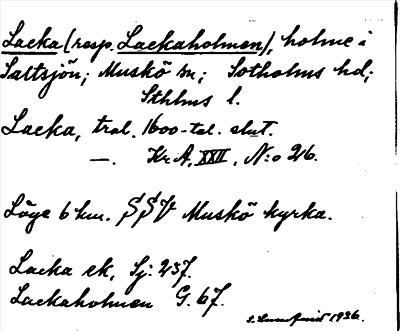 Lacka (resp. Lackaholmen), holme i
Saltsjön; Muskö sn; Sotholms hd;
Sthlms l.
Lacka, trol. 1600-tal. slut.
—. Kr. A. XXII, N:o 26.
Läge 6 km. SSV Muskö kyrka.
Lacka ek, Sj. 237.
Lackaholmen G. 67.
1936.